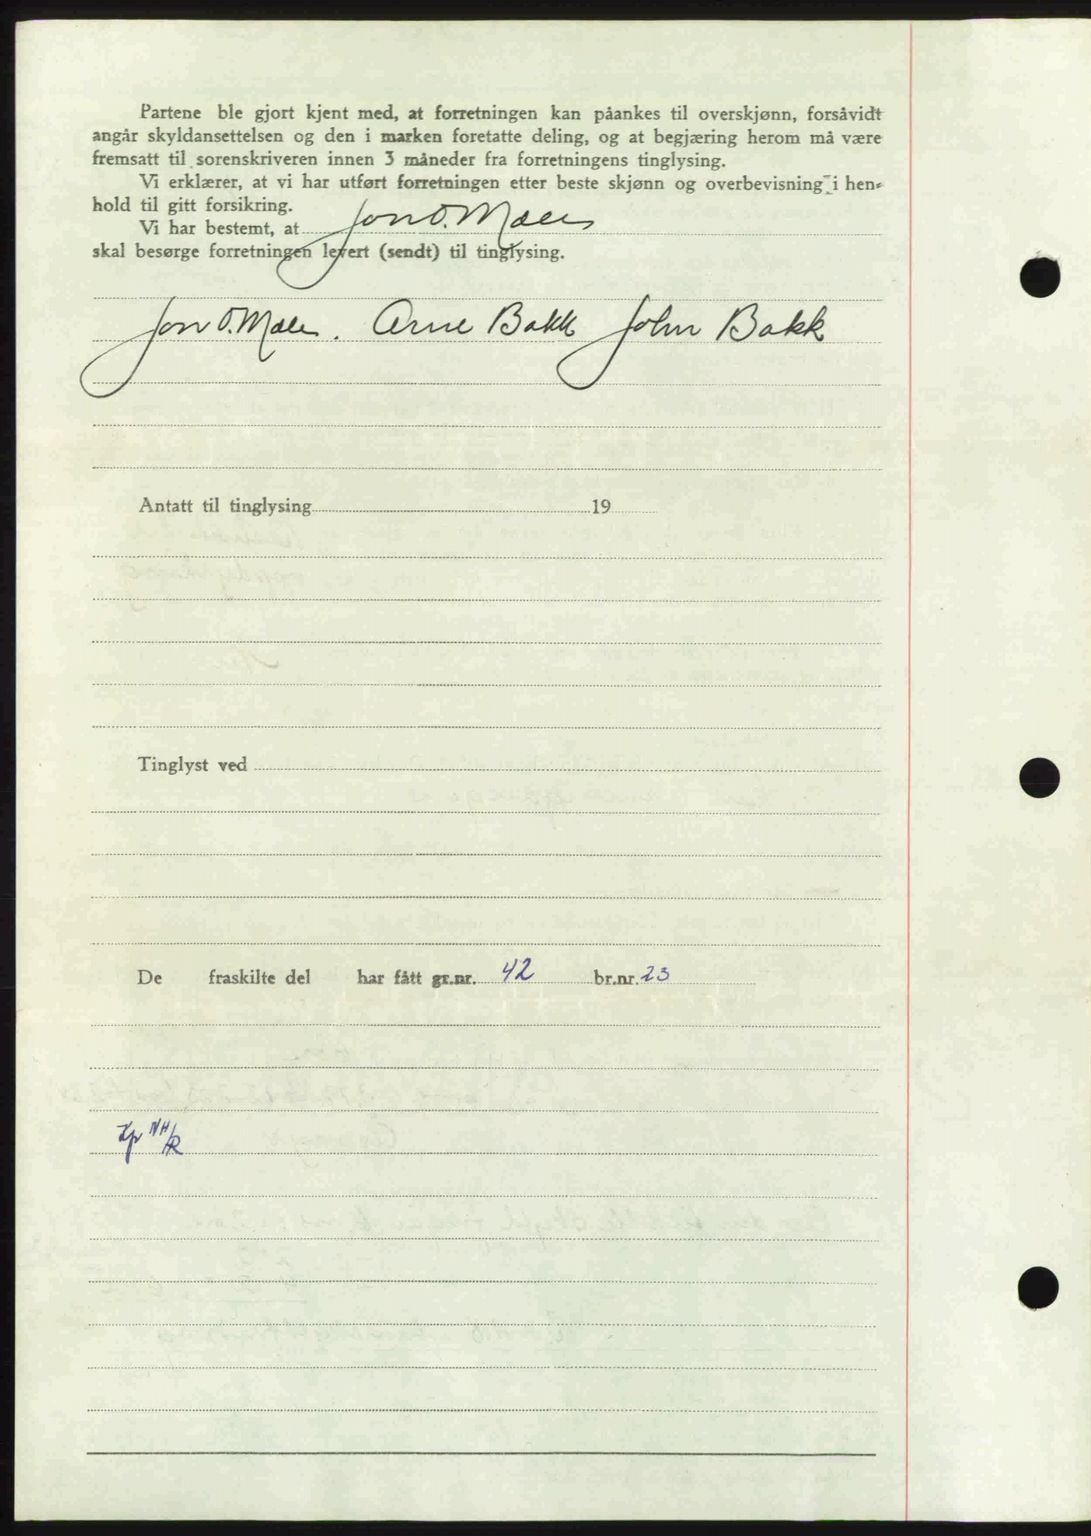 Partene ble gjort kjent med, at forretningen kan påankes til overskjønn, forsåvidt
angår skyldansettelsen og den i marken foretatte deling, og at begjæring herom må være
fremsatt til sorenskriveren innen 3 måneder fra forretningens tinglysing.
Vi erklærer, at vi har utført forretningen etter beste skjønn og overbevisning i hen-
hold til gitt forsikring.
Vi har bestemt, at Jon O. Mæle
skal besørge forretningen levert (sendt) til tinglysing.
Jon O. Mæle. Arne Bakk John Bakk
Antatt til tinglysing 19
Tinglyst ved
De fraskilte del har fått gr.nr. 42 br.nr. 23